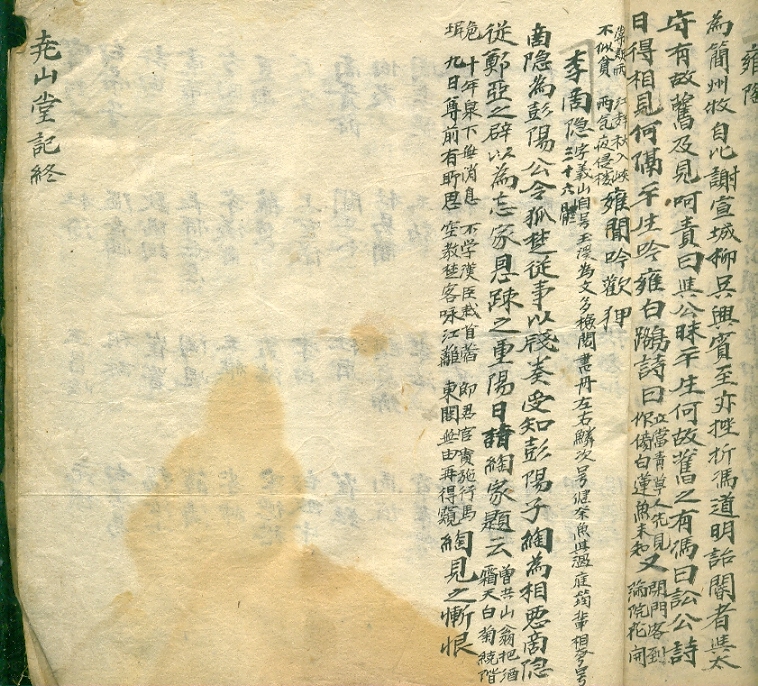 雍陶
為簡州牧自比謝宣城柳吳興賓至亦挫折馮道明詣閽者與太
守有故舊及見呵責曰與公昧平生何故舊之有馮曰訟公詩
日得相見何隔平生吟雍白鷗詩曰立當青草人先見作傍白蓮魚未知又閉門客到滿院花開
常疑病不似貧江声秋入峽雨氣夜侵樓雍聞吟歡狎
李商隐字義山自号玉溪為文多檢閱書冊左右鱗次号獺祭魚與溫庭筠輩相夸号
三十六體
商隐為彭陽公令狐楚従事以牋奏受知彭陽子綯為相惡商隐
従鄭亞之辟以為忘家恩疎之重陽日詣綯家題云曾共山翁把酒霜天白菊繞階
巵十年泉下無消息墀九日尊前有所思不學漢臣栽苜蓿空教楚客咏江蘺郎君官貴施行馬東閣無由再得窺綯見之慚恨
尭山堂記終